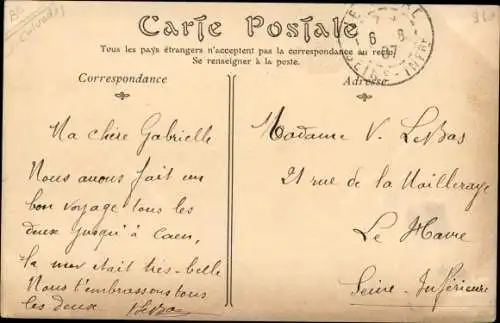 Carte Postale
Tous les pays étrangers n'acceptent pas la correspondance au recto
Se renseigner à la poste.
Correspondance
Adresse
Calvados
6 8
07
SEINE-INFRE
Ma chère Gabrielle
Nous avons fait un
bon voyage tous les
deux jusqu'à Caen,
la mer était très-belle
Nous t'embrassons tous
les deux
Madame V. LeBas
21 rue de la Mailleraye
Le Havre
Seine-Inférieure